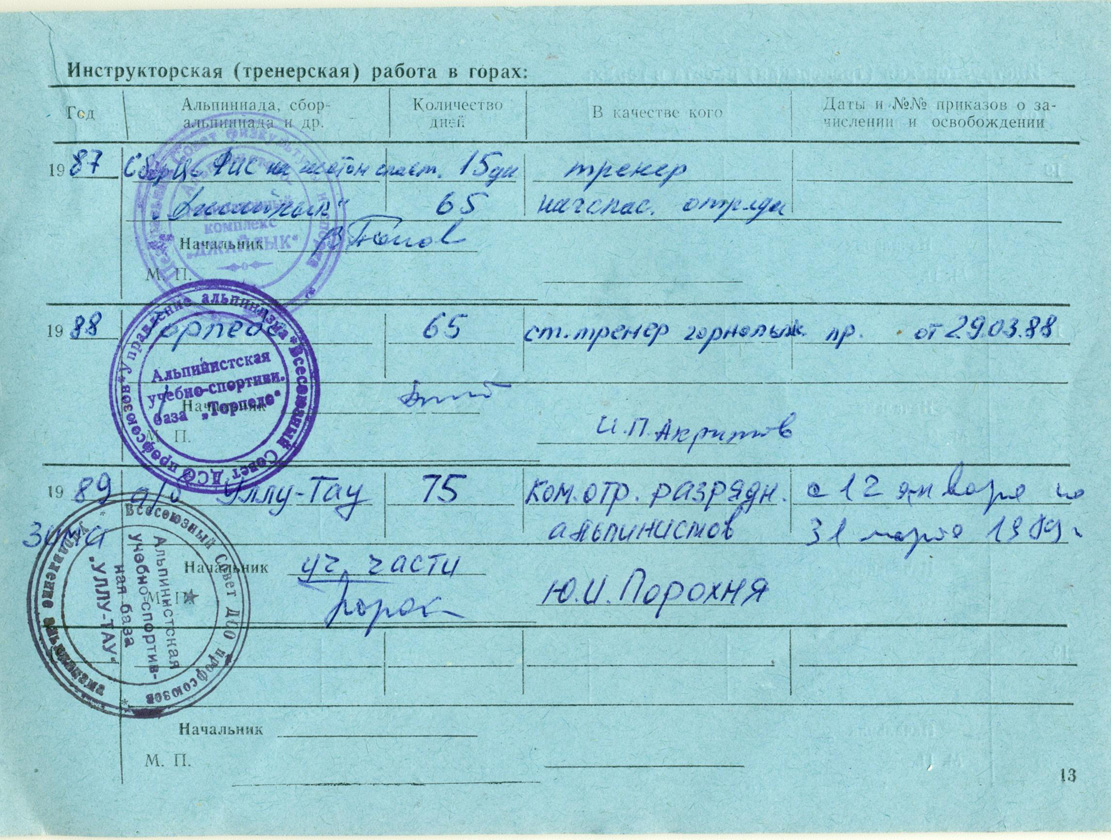 Инструкторская (тренерская) работа в горах:
Год
Альпиниада, сбор-
альпиниада и др.
Количество
дней
В качестве кого
Даты и №№ приказов о за-
числении и освобождении
1987
15 дн
тренер
65
нач.спас. отряда
Начальник
М. П.
комплекс
„ДЖАЙЛЫК“
1988 Торпедо 65 ст.тренер горнолыж. пр. от 29.03.88
Управление альпинизма * Всесоюзный Совет ДСО профсоюзов *
Альпинистская
учебно-спортивн.
база „Торпедо“
Начальник
М. П.
1989 а/б Уллу-Тау 75 Ком.отр. разрядн. с 12 января по
зима альпинистов 31 марта 1989г.
Начальник уч. части
М. П.
Ю.И.Порохня
Всесоюзный Совет ДСО профсоюзов
Управление альпинизма
Альпинистская
учебно-спортив-
ная база
„УЛЛУ-ТАУ“
Начальник
М. П.
13